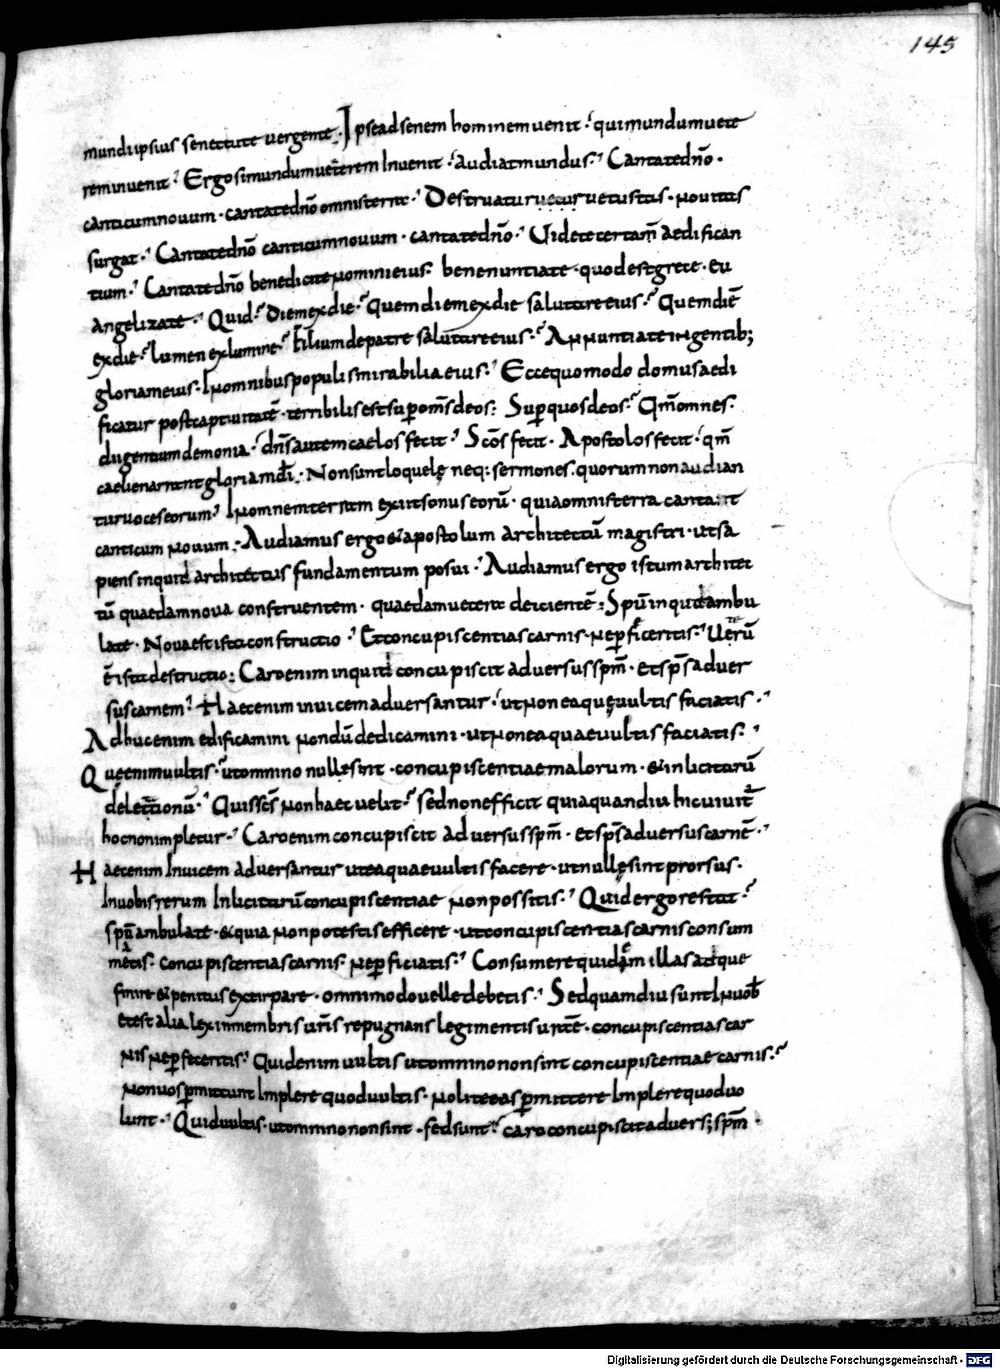 145
mundi ipsius senectute vergente. Ipse ad senem hominem uenit. qui mundum uete
rem inuenit. Ergo si mundum ueterem Inuenit. audiat mundus. Cantate dn̄o.
canticum nouum. cantate dn̄o omnis terra. Destruatur uetustas. nouitas
surgat. Cantate dn̄o canticum nouum. cantate dn̄o. Uidete certam̄ aedifican
tium. Cantate dn̄o benedicite nomini eius. bene nuntiate. quod est grece. eu
angelizate. Quid? diem ex die. Quem diem ex die salutare eius? Quem diē
ex die? lumen ex lumine. Filium de patre salutare eius. Annuntiate in gentib;
gloriam eius. In omnibus populis mirabilia eius. Ecce quomodo domus aedi
ficatur post captiuitatē. terribilis est sup om̄s deos. Super quos deos? Qm̄ omnes.
dii gentium demonia. dn̄s autem caelos fecit. Sc̄os fecit. Apostolos fecit. qm̄
caeli enarrant gloriam dī. Non sunt loquelę neq; sermones. quorum non audian
tur uoces eorum. In omnem terram exiit sonus eorū. quia omnis terra cantauit
canticum nouum. Audiamus ergo & apostolum architectū magistri. ut sa
piens inquid architectus fundamentum posui. Audiamus ergo istum architec
tū quaedam noua construentem. quaedam uetera deicientē. Spū inquit ambu
late. Noua est ista constructio. Et concupiscentias carnis. ne pfeceritis. Ueterū
ē ista destructio. Caro enim inquit concupiscit aduersus spm̄. et sps̄ aduer
sus carnem. Haec enim inuicem aduersantur. ut non ea quę uultis faciatis.
Adhuc enim edificamini nondū dedicamini. ut non ea quae uultis faciatis.
Quę enim uultis. ut omnino nullę sint. concupiscentiae malorum. & inlicitarū
delectationū. Quis sc̄s non haec uelit? sed non efficit quia quandiu hic uiuit
hoc non impletur. Caro enim concupiscit aduersus spm̄. et sps̄ aduersus carnē.
Haec enim Inuicem aduersantur ut ea quae uultis facere. ut nullę sint prorsus.
In uobis rerum Inlicitarū concupiscentiae non possitis. Quid ergo restat?
spū ambulate. & quia non potestis efficere. ut concupiscentias carnis consum
metis. concupiscentias carnis. ne pficiatis. Consumere quidem illas atque
finire & penitus extirpare. omnimodo uelle debetis. Sed quamdiu sunt In uob̄
et est alia lex in membris ur̄is repugnans legi mentis ur̄ae. concupiscentias car
nis ne pfeceritis. Quid enim uultis ut omnino non sint concupiscentiae carnis.
non uos pmittunt Implere quod uultis. nolite eas pmittere Implere quod uo
lunt. Quid uultis. ut omnino non sint. sed sunt. caro concupiscit aduers; spm̄.
Digitalisierung gefördert durch die Deutsche Forschungsgemeinschaft - DFG